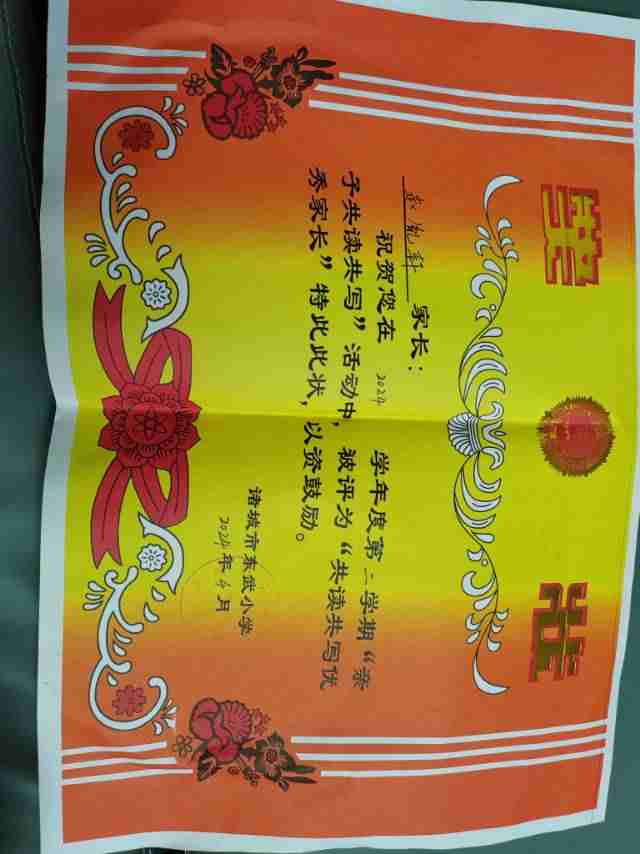 奖 状
家长：
祝贺您在 2024 学年度第二学期“亲
子共读共写”活动中，被评为“共读共写优
秀家长”特此此状，以资鼓励。
诸城市东武小学
2024年4月